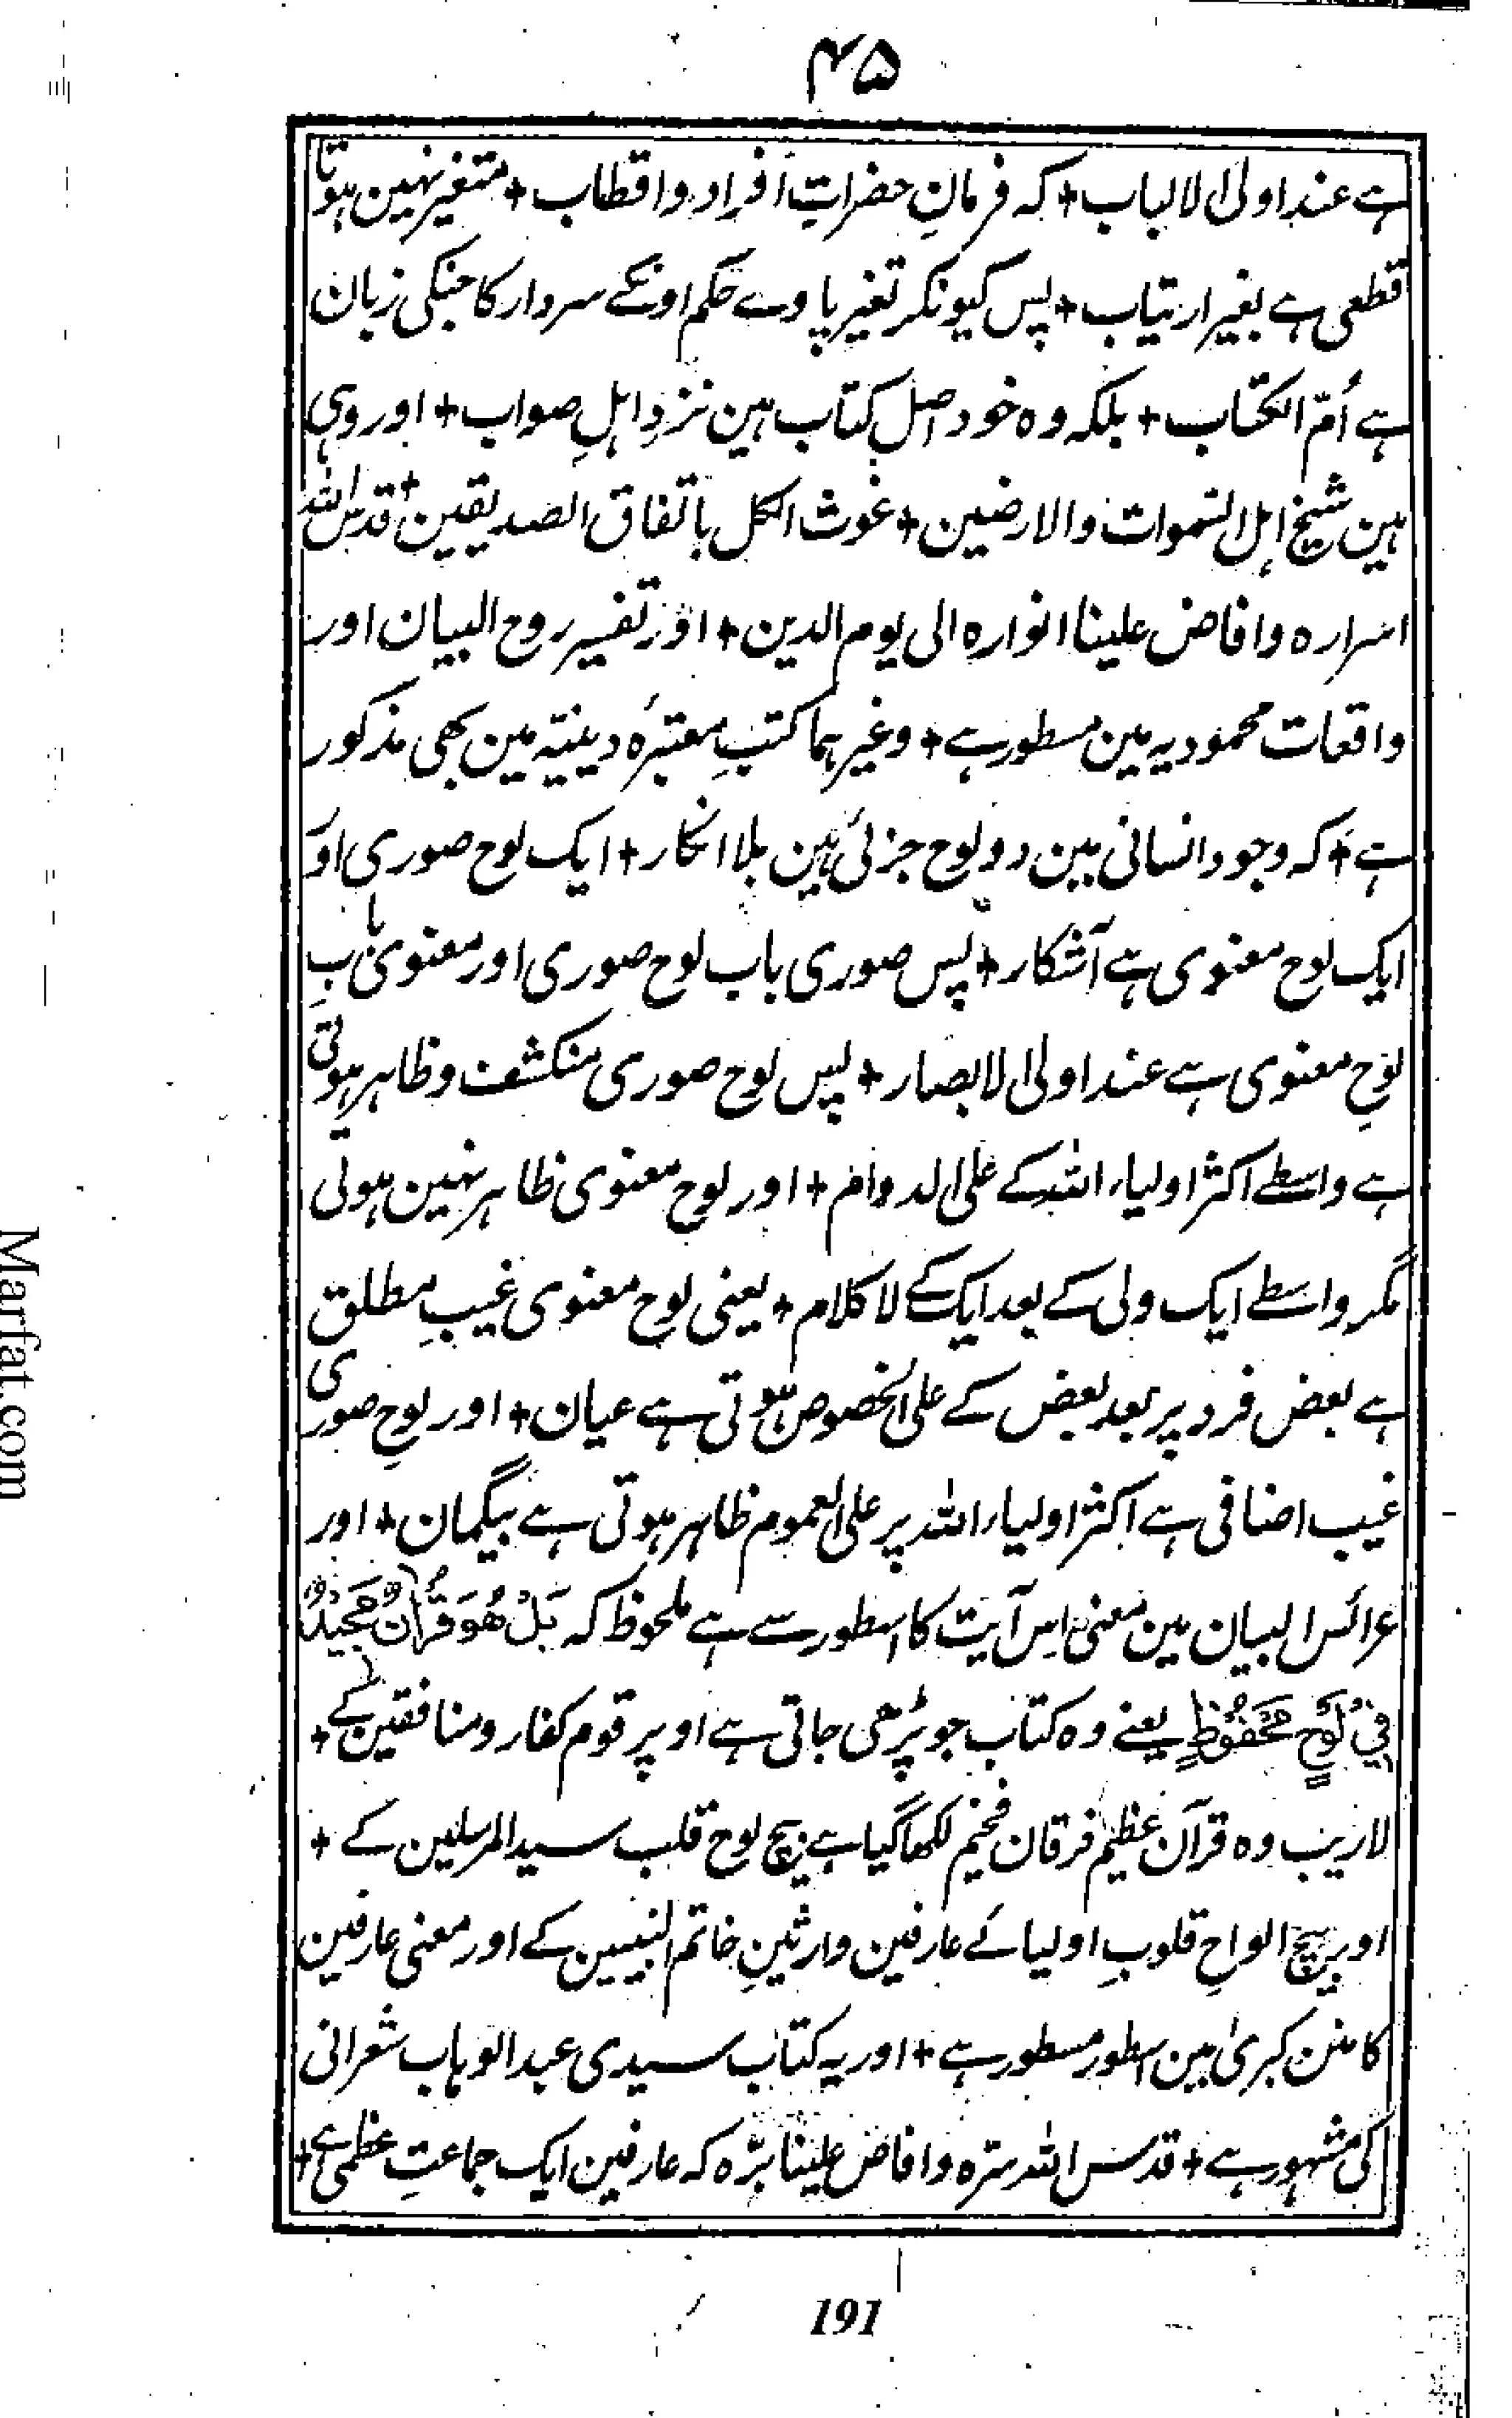 ۴۵
ہے عند اولی الالباب + کہ فرمانِ حضراتِ افراد و اقطاب + متغیر نہین ہوتا
قطعی ہے بغیر ارتیاب + پس کیونکر تغیر پاوے حکم اونکے سردار کا جنکی زبان
ہے اُمّ الکتاب + بلکہ وہ خود اصل کتاب ہین نزدِ اہلِ صواب + اور وہی
ہین شیخ اہل السّموات والارضین + غوث الکل باتفاق الصدیقین + قدس اللہ
اسرارہ وافاض علینا انوارہ الی یوم الدین + اور تفسیر روح البیان اور
واقعات محمودیہ مین مسطور ہے + وغیرہما کتبِ معتبرۂ دینیّہ مین بھی مذکور
ہے + کہ وجود انسانی مین دو لوح جزئی ہین بلا انکار + ایک لوح صوری اور
ایک لوح معنوی ہے آشکار + پس صوری باب لوح صوری اور معنوی بابِ
لوحِ معنوی ہے عند اولی الابصار + پس لوح صوری منکشف و ظاہر ہوتی
ہے واسطے اکثر اولیاء اللہ کے علی الدوام + اور لوح معنوی ظاہر نہین ہوتی
مگر واسطے ایک ولی کے بعد ایک کے لا کلام + یعنی لوح معنوی غیبِ مطلق
ہے بعض فرد پر بعد بعض کے علی الخصوص ہوتی ہے عیان + اور لوحِ صوری
غیب اضافی ہے اکثر اولیاء اللہ پر علی العموم ظاہر ہوتی ہے بیگمان + اور
عرائس البیان مین معنی اس آیت کا اسطور سے ہے ملحوظ کہ بَلْ هُوَ قُرْآنٌ مَّجِيْدٌ
فِيْ لَوْحٍ مَّحْفُوْظٍ یعنے وہ کتاب جو پڑھی جاتی ہے اوپر قوم کفار و منافقین کے +
لاریب وہ قرآن عظیم فرقان فخیم لکھا گیا ہے بیچ لوح قلب سید المرسلین کے +
اور بیچ الواحِ قلوبِ اولیائے عارفین وارثینِ خاتم النبیین کے اور معنی عارفین
کا منن کبریٰ مین اسطور مسطور ہے + اور یہ کتاب سیدی عبد الوہاب شعرانی
کی مشہور ہے + قدس اللہ سرّہ وافاض علینا برّہ کہ عارفین ایک جماعتِ عظمیٰ ہے +
191
Marfat.com